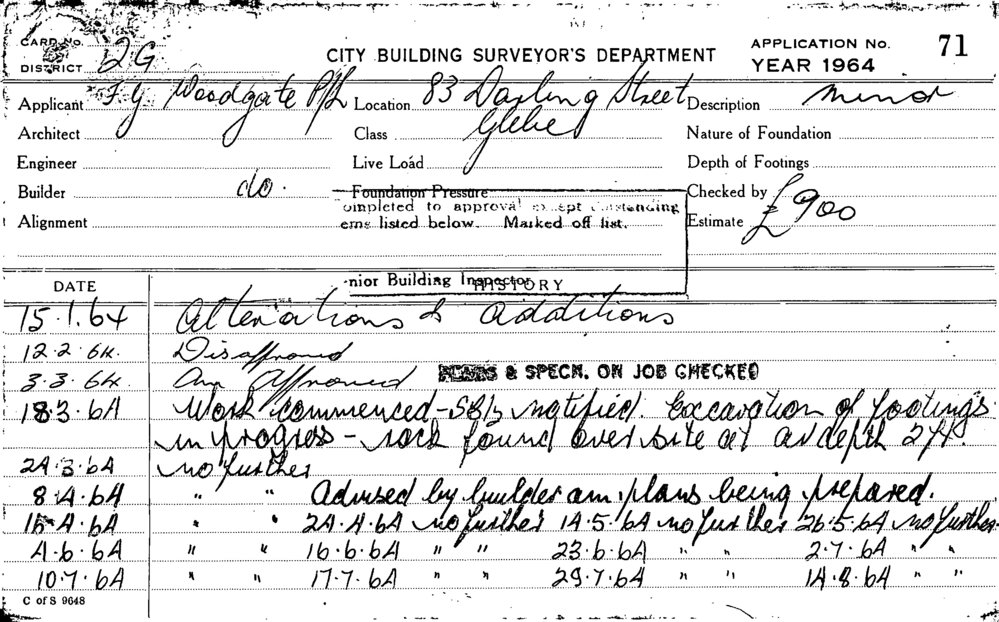 CARD No. 2G CITY BUILDING SURVEYOR'S DEPARTMENT APPLICATION No. 71
DISTRICT YEAR 1964
Applicant F J Woodgate P/L Location 83 Darling Street Description minor
Architect Class Glebe Nature of Foundation
Engineer Live Load Depth of Footings
Builder do. Foundation Pressure Checked by
ompleted to approval except outstanding
Alignment ems listed below. Marked off list. Estimate £900
nior Building Inspector
DATE HISTORY
15.1.64 Alterations & additions
12.2.64. Disapproved
3.3.64. Am Approved PLANS & SPECN. ON JOB CHECKED
18.3.64 Work commenced - notified. Excavation of footings
in progress - rock found over site at av depth 2ft.
24.3.64 no further
8.4.64 " " Advised by builder am. plans being prepared.
15.4.64 " " 24.4.64 no further 14.5.64 no further 26.5.64 no further
4.6.64 " " 16.6.64 " " 23.6.64 " " 2.7.64 " "
10.7.64 " " 17.7.64 " " 29.7.64 " " 14.8.64 " "
C of S 9648